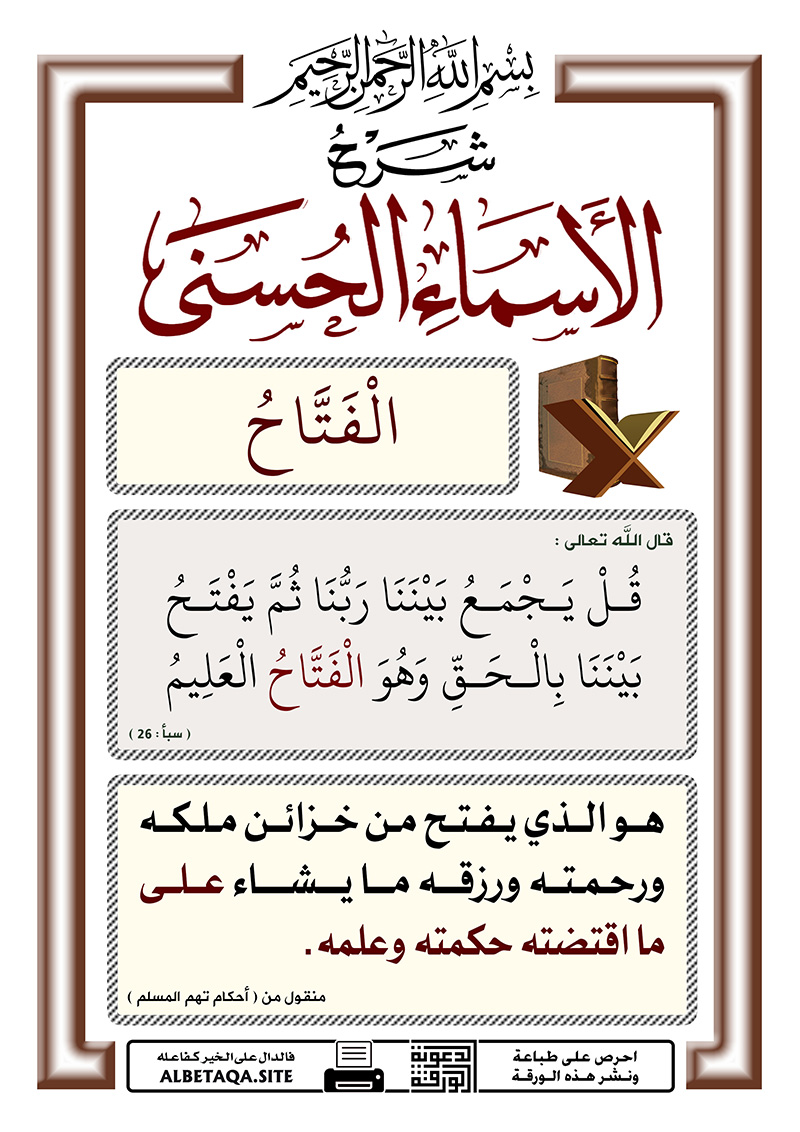 بِسْمِ اللَّهِ الرَّحْمَنِ الرَّحِيمِ
شَرْحُ
الأَسْمَاءِ الحُسْنَى
الْفَتَّاحُ
قال اللَّه تعالى :
قُلْ يَجْمَعُ بَيْنَنَا رَبُّنَا ثُمَّ يَفْتَحُ
بَيْنَنَا بِالْحَقِّ وَهُوَ الْفَتَّاحُ الْعَلِيمُ
( سبأ : 26 )
هو الذي يفتح من خزائن ملكه
ورحمته ورزقه ما يشاء على
ما اقتضته حكمته وعلمه .
منقول من ( أحكام تهم المسلم )
احرص على طباعة
ونشر هذه الورقة
الورقة
الدعوية
فالدال على الخير كفاعله
ALBETAQA.SITE